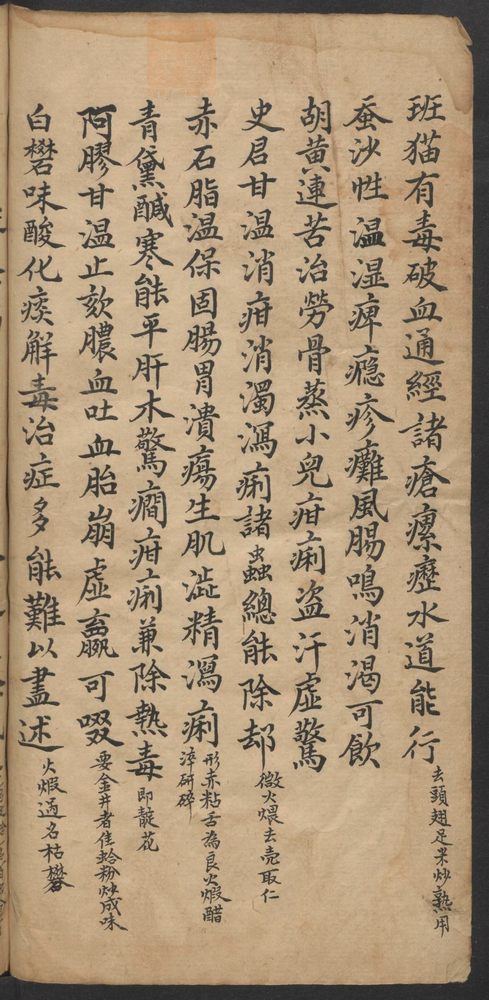 班猫有毒破血通經諸瘡瘰癧水道能行 去頭翅足米炒熟用
蚕沙性温湿痺癮疹癱風腸鳴消渴可飲
胡黄連苦治勞骨蒸小兒疳痢盗汗虛驚
史君甘温消疳消濁瀉痢諸蟲總能除却 微火煨去壳取仁
赤石脂温保固腸胃潰瘍生肌澁精瀉痢 形赤粘舌為良火煅醋
淬研碎
青黛鹹寒能平肝木驚癇疳痢兼除熱毒 即靛花
阿膠甘温止欬膿血吐血胎崩虛羸可啜 要金井者佳蛤粉炒成味
白礬味酸化痰解毒治症多能難以盡述 火煅過名枯礬